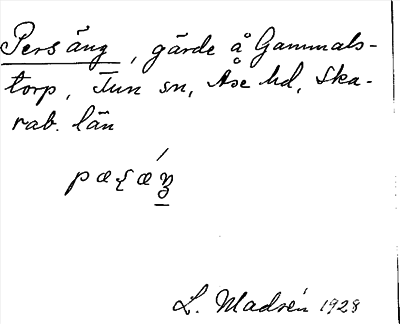 Pers äng, gärde å Gammals-
torp, Tun sn, Åse hd, Ska-
rab. län
L. Madsén 1928